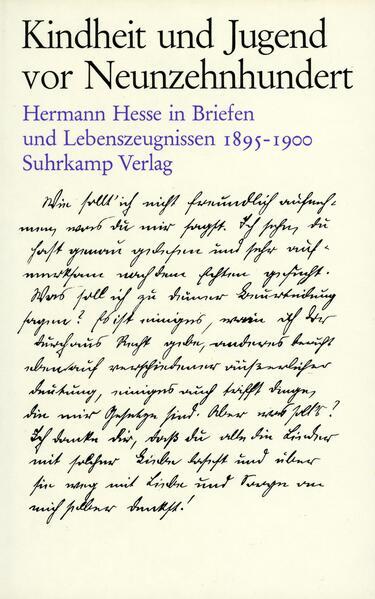 Kindheit und Jugend
vor Neunzehnhundert
Hermann Hesse in Briefen
und Lebenszeugnissen 1895-1900
Suhrkamp Verlag
Wie sollt' ich nicht freundlich aufneh-
men, was du mir sagst. Ich sehe, du
hast genau gelesen und sehr auf-
merksam nach dem Echten gesucht.
Was soll ich zu deiner Beurteilung
sagen? Es ist einiges, worin ich dir
durchaus Recht gebe, anderes beruht
eben auf verschiedener äusserlicher
Deutung, einiges auch trifft Dinge,
die mir Gesetze sind. Aber was soll's?
Ich danke dir, daß du alle die Lieder
mit solcher Liebe lasest und über
sie weg mit Liebe und Sorge an
mich selber denkst!